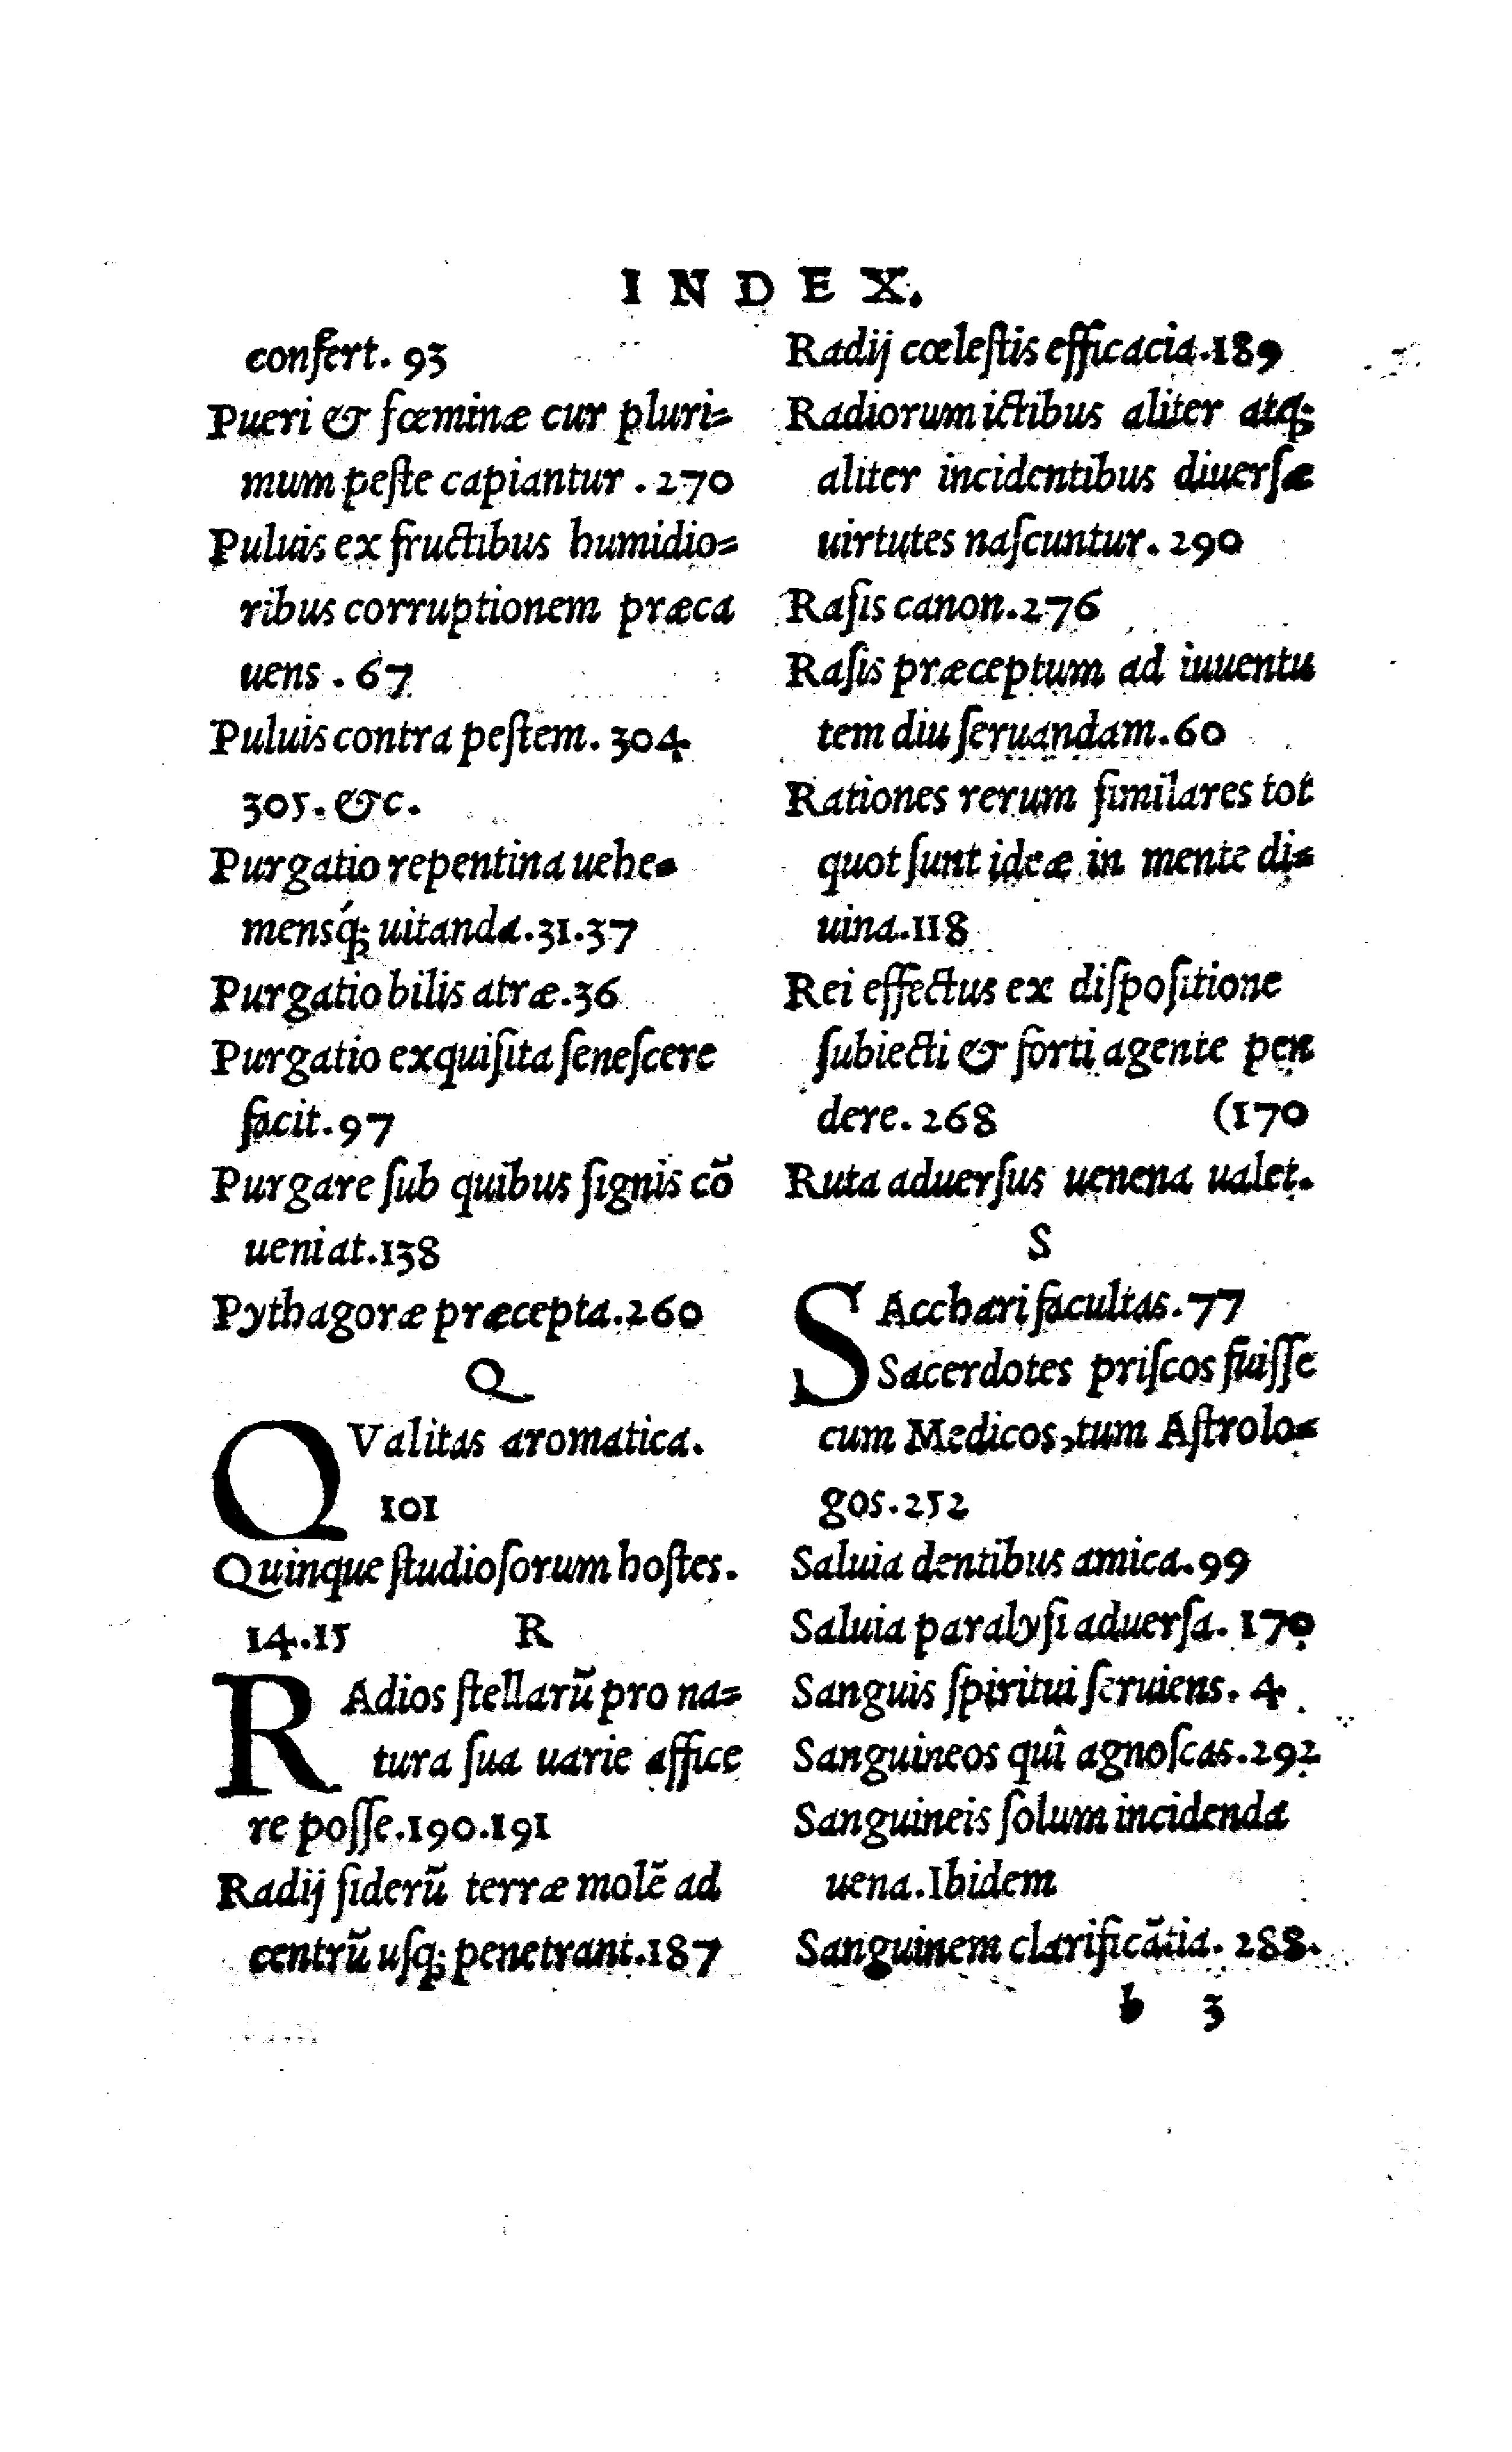 INDEX.
confert. 93
Pueri & fœminæ cur pluri=
mum peſte capiantur . 270
Puluis ex fructibus humidio=
ribus corruptionem præca
uens . 67
Puluis contra peſtem. 304
305. &c.
Purgatio repentina uehe=
mensq́; uitanda.31.37
Purgatio bilis atræ.36
Purgatio exquiſita ſeneſcere
facit.97
Purgare ſub quibus ſignis cõ
ueniat.138
Pythagoræ præcepta.260
Q
QValitas aromatica.
101
Quinque ſtudioſorum hoſtes.
14.15
R
RAdios ſtellarũ pro na=
tura ſua uarie affice
re poſſe.190.191
Radij ſiderũ terræ molẽ ad
centrũ uſq; penetrant.187
Radij cœleſtis efficacia.189
Radiorum ictibus aliter atq;
aliter incidentibus diuerſæ
uirtutes naſcuntur. 290
Raſis canon.276
Raſis præceptum ad iuuentu
tem diu ſeruandam.60
Rationes rerum ſimilares tot
quot ſunt ideæ in mente di=
uina.118
Rei effectus ex diſpoſitione
ſubiecti & forti agente pen
dere. 268 (170
Ruta aduerſus uenena ualet.
S
SAcchari facultas.77
Sacerdotes priſcos fuiſſe
cum Medicos,tum Aſtrolo=
gos.252
Saluia dentibus amica.99
Saluia paralyſi aduerſa. 170
Sanguis ſpiritui ſeruiens. 4
Sanguineos quî agnoſcas.292
Sanguineis ſolum incidenda
uena.Ibidem
Sanguinem clarificãtia. 288.
b 3